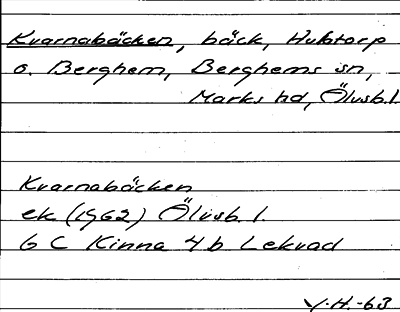 Kvarnabäcken, bäck, Hulatorp
o. Berghem, Berghems sn,
Marks hd, Älvsb.l.
Kvarnabäcken
ek (1962) Älvsb. l.
6 C Kinna 4 b Lekvad
Y.H.-63